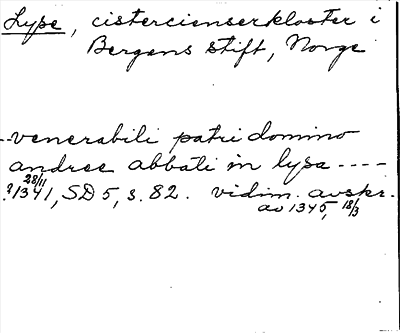 Lyse, cistercienserkloster i
Bergens stift, Norge
--venerabili patri domino
andree abbati in lysa ----
?1341 28/11, SD 5, s. 82. vidim. avskr.
av 1345, 18/3